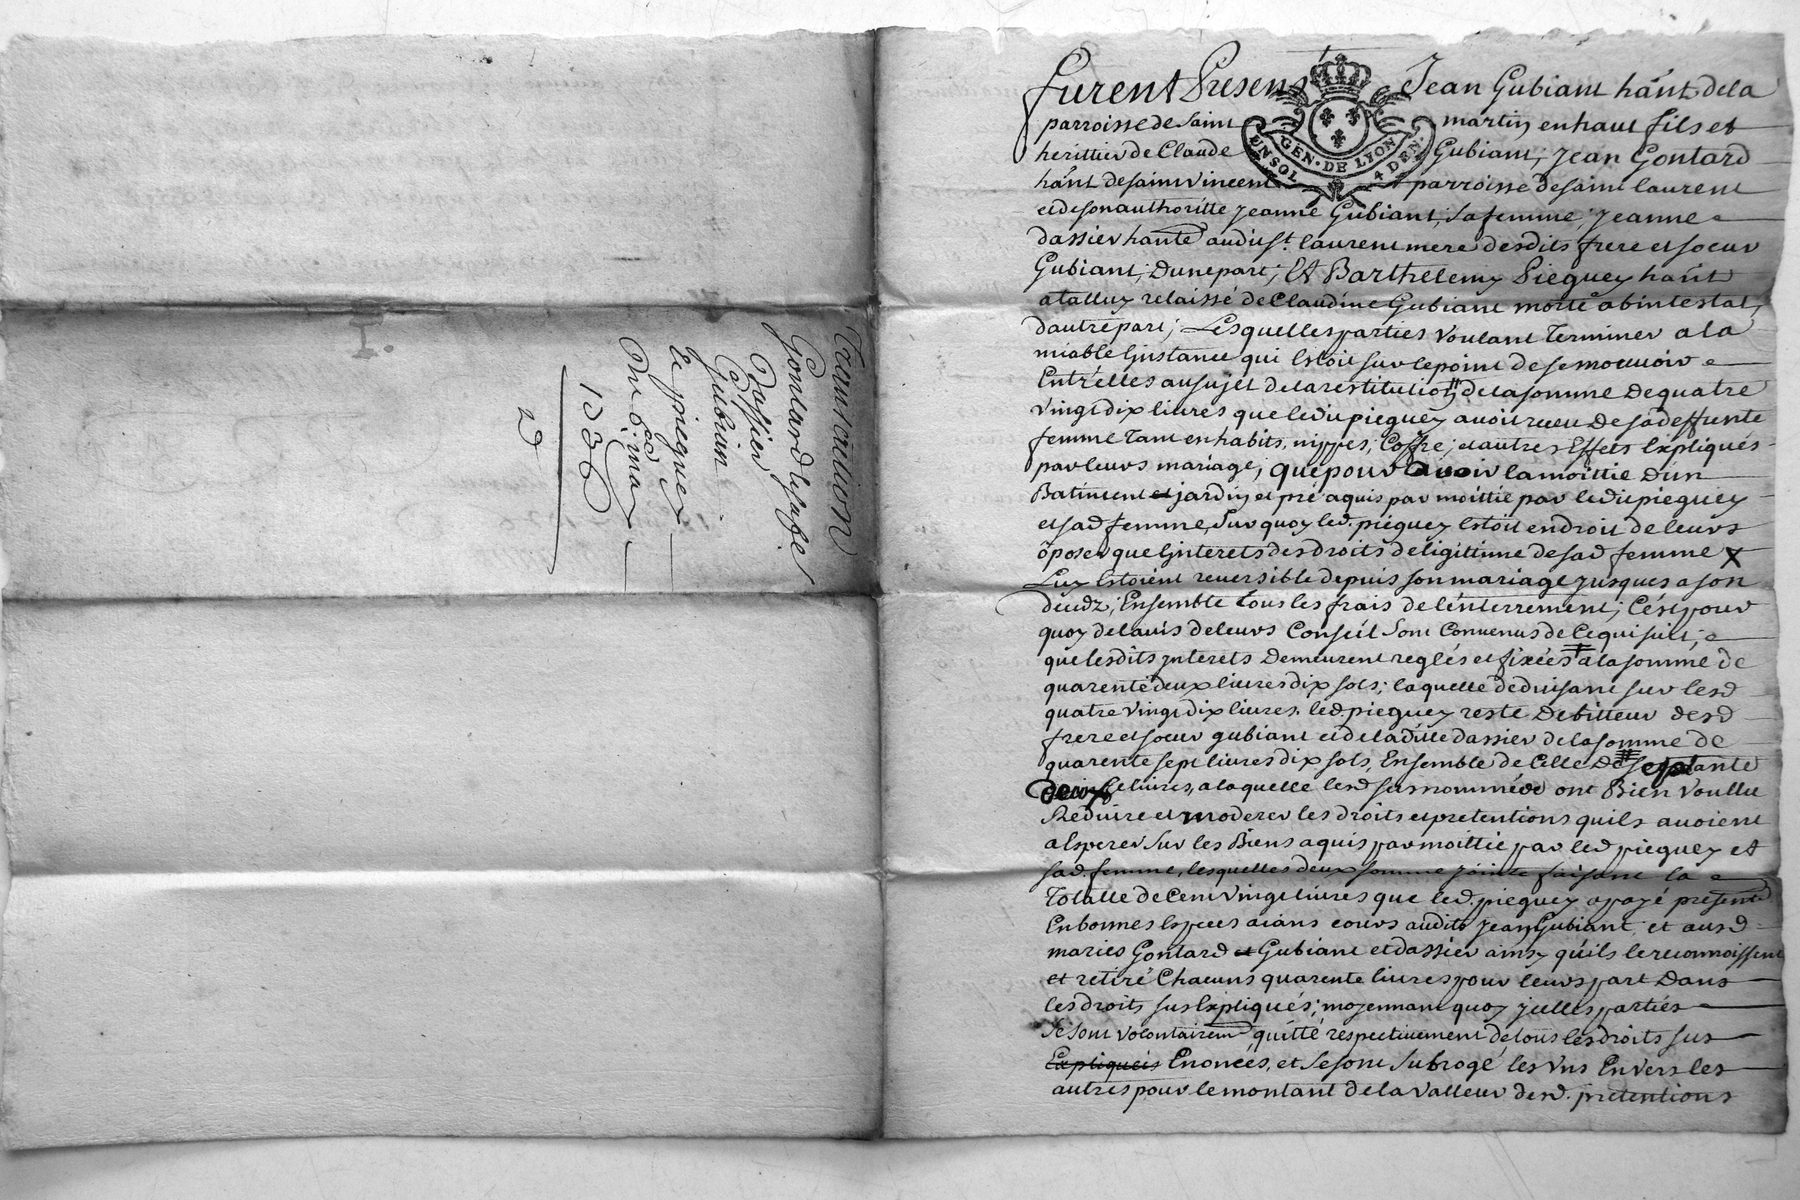 Transaction
Gontard, sa fe
Dassier
Gubian
le pieguey
Du 6e mar
1736
2
furent Presens Jean Gubiant hant dela
parroisse de saint martin en haut fils et
herittier de Claude Gubiant, Jean Gontard
hant de saint vincent parroisse de saint laurent
et de son authoritte jeanne Gubiant, sa femme, jeanne
dassier hante audit st. laurent mere desdits frere et soeur
Gubiant, Dune part; Et Barthelemy Pieguey hant
a talluy relaissé de Claudine Gubiant morte abintestat,
dautre part; Lesquelles parties Voulant Terminer a la
miable Linstance qui Estoit sur le point de se mouuoir
Entr'elles au sujet de la restitution de la somme De quatre
vingt dix liures que ledit pieguey auoit receu De sa deffunte
femme Tant en habits, nippes, Coffre, et autres Effets Expliqués
par leurs mariage; que pour avoir la moittié Dun
Batiment et jardin et pré aquis par moittié par ledit pieguey
et sad femme, Sur quoy led. pieguey Estoit en droit de leurs
oposer que Linterets des droits de ligittime de sad femme X
Luy Estoient reuersible depuis son mariage jusques a son
decedz; Ensemble tous les frais de lénterrement; C'est pour
quoy de lauis de leurs Conseil Sont Conuenus de Ce qui suit;
que lesdits jnterets Demeurent reglés et fixées a la sommé de
quarente deux liures dix sols; laquelle deduisant sur lesd
quatre vingt dix liures. led. pieguey reste Debitteur desd
frere et soeur gubiant et de laditte dassier de la somme de
quarente sept liures dix sols, Ensemble de Celle De septante
deux liures, a laquelle lesd susnommés ont Bien Voullu
Reduire et moderer les droits et pretentions quils auoient
a Esperer Sur les Biens aquis par moittié par led pieguey et
sad. femme, lesquelles deux somme jointe faisant la
Totalle de Cent Vingt liures que led. pieguey a payé presente
En bonnes Especes aians cours audits jean Gubiant, et ausd
maries Gontard et Gubiant et dassier ainsy quils le reconnoissent
et retiré Chacuns quarente liures pour leurs part Dans
les droits sus Expliqués; moyennant quoy jcelles parties
se sont volontairem quitté respectiuement de tous les droits sus
Expliqueis Enoncés, et se sont Subrogé les Vns Envers les
autres pour le montant de la valleur desd. pretentions
GEN. DE LYON
4 DEN.